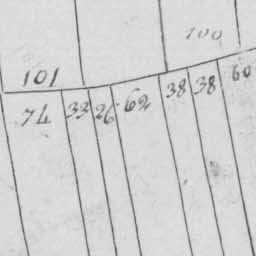 100
101
74 33 26 62 38 38 60